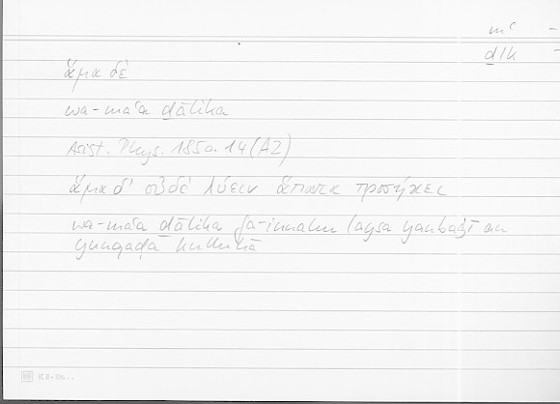 mʿ
ḏlk
ἅμα δέ
wa-maʿa ḏālika
Arist. Phys. 185a 14 (A2)
ἅμα δ' οὐδὲ λύειν ἅπαντα προσήκει
wa-maʿa ḏālika fa-innahu laysa yanbaġī an
yunqaḍa